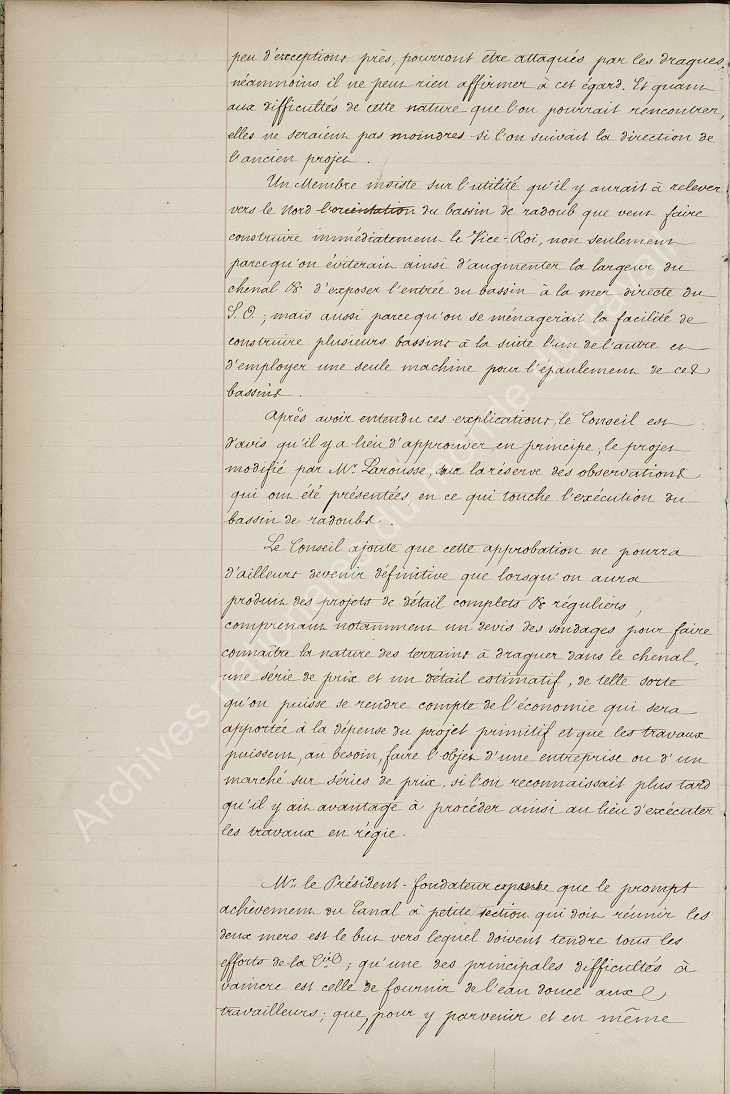 peu d'exceptions près, pourront être attaqués par les dragues,
néammoins il ne peut rien affirmer à cet égard. Et quant
aux difficultés de cette nature que l'on pourrait rencontrer,
elles ne seraient pas moindres si l'on suivait la direction de
l'ancien projet.
Un Membre insiste sur l'utilité qu'il y aurait à relever
vers le Nord l'orientation du bassin de radoub que veut faire
construire immédiatement le Vice-Roi, non seulement
parcequ'on éviterait ainsi d'augmenter la largeur du
chenal & d'exposer l'entrée du bassin à la mer directe du
S.O; mais aussi parce qu'on se ménagerait la facilité de
construire plusieurs bassins à la suite l'un de l'autre et
d'employer une seule machine pour l'épuisement de ces
bassins.
Après avoir entendu ces explications, le Conseil est
d'avis qu'il y a lieu d'approuver en principe, le projet
modifié par Mr. Larousse, sous la réserve des observations
qui ont été présentées, en ce qui touche l'exécution du
bassin de radoubs.
Le Conseil ajoute que cette approbation ne pourra
d'ailleurs devenir définitive que lorsqu'on aura
produit des projets de détail complets & réguliers,
comprenant notamment un devis des sondages pour faire
connaître la nature des terrains à draguer dans le chenal,
une série de prix et un détail estimatif, de telle sorte
qu'on puisse se rendre compte de l'économie qui sera
apportée à la dépense du projet primitif et que les travaux
puissent, au besoin, faire l'objet d'une entreprise ou d'un
marché sur séries de prix, si l'on reconnaissait plus tard
qu'il y ait avantage à procéder ainsi au lieu d'exécuter
les travaux en régie.
Mr. le Président-fondateur expose que le prompt
achèvement du Canal à petite section qui doit réunir les
deux mers est le but vers lequel doivent tendre tous les
efforts de la Cie; qu'une des principales difficultés à
vaincre est celle de fournir de l'eau douce aux
travailleurs; que, pour y parvenir et en même
Archives nationales du monde du travail